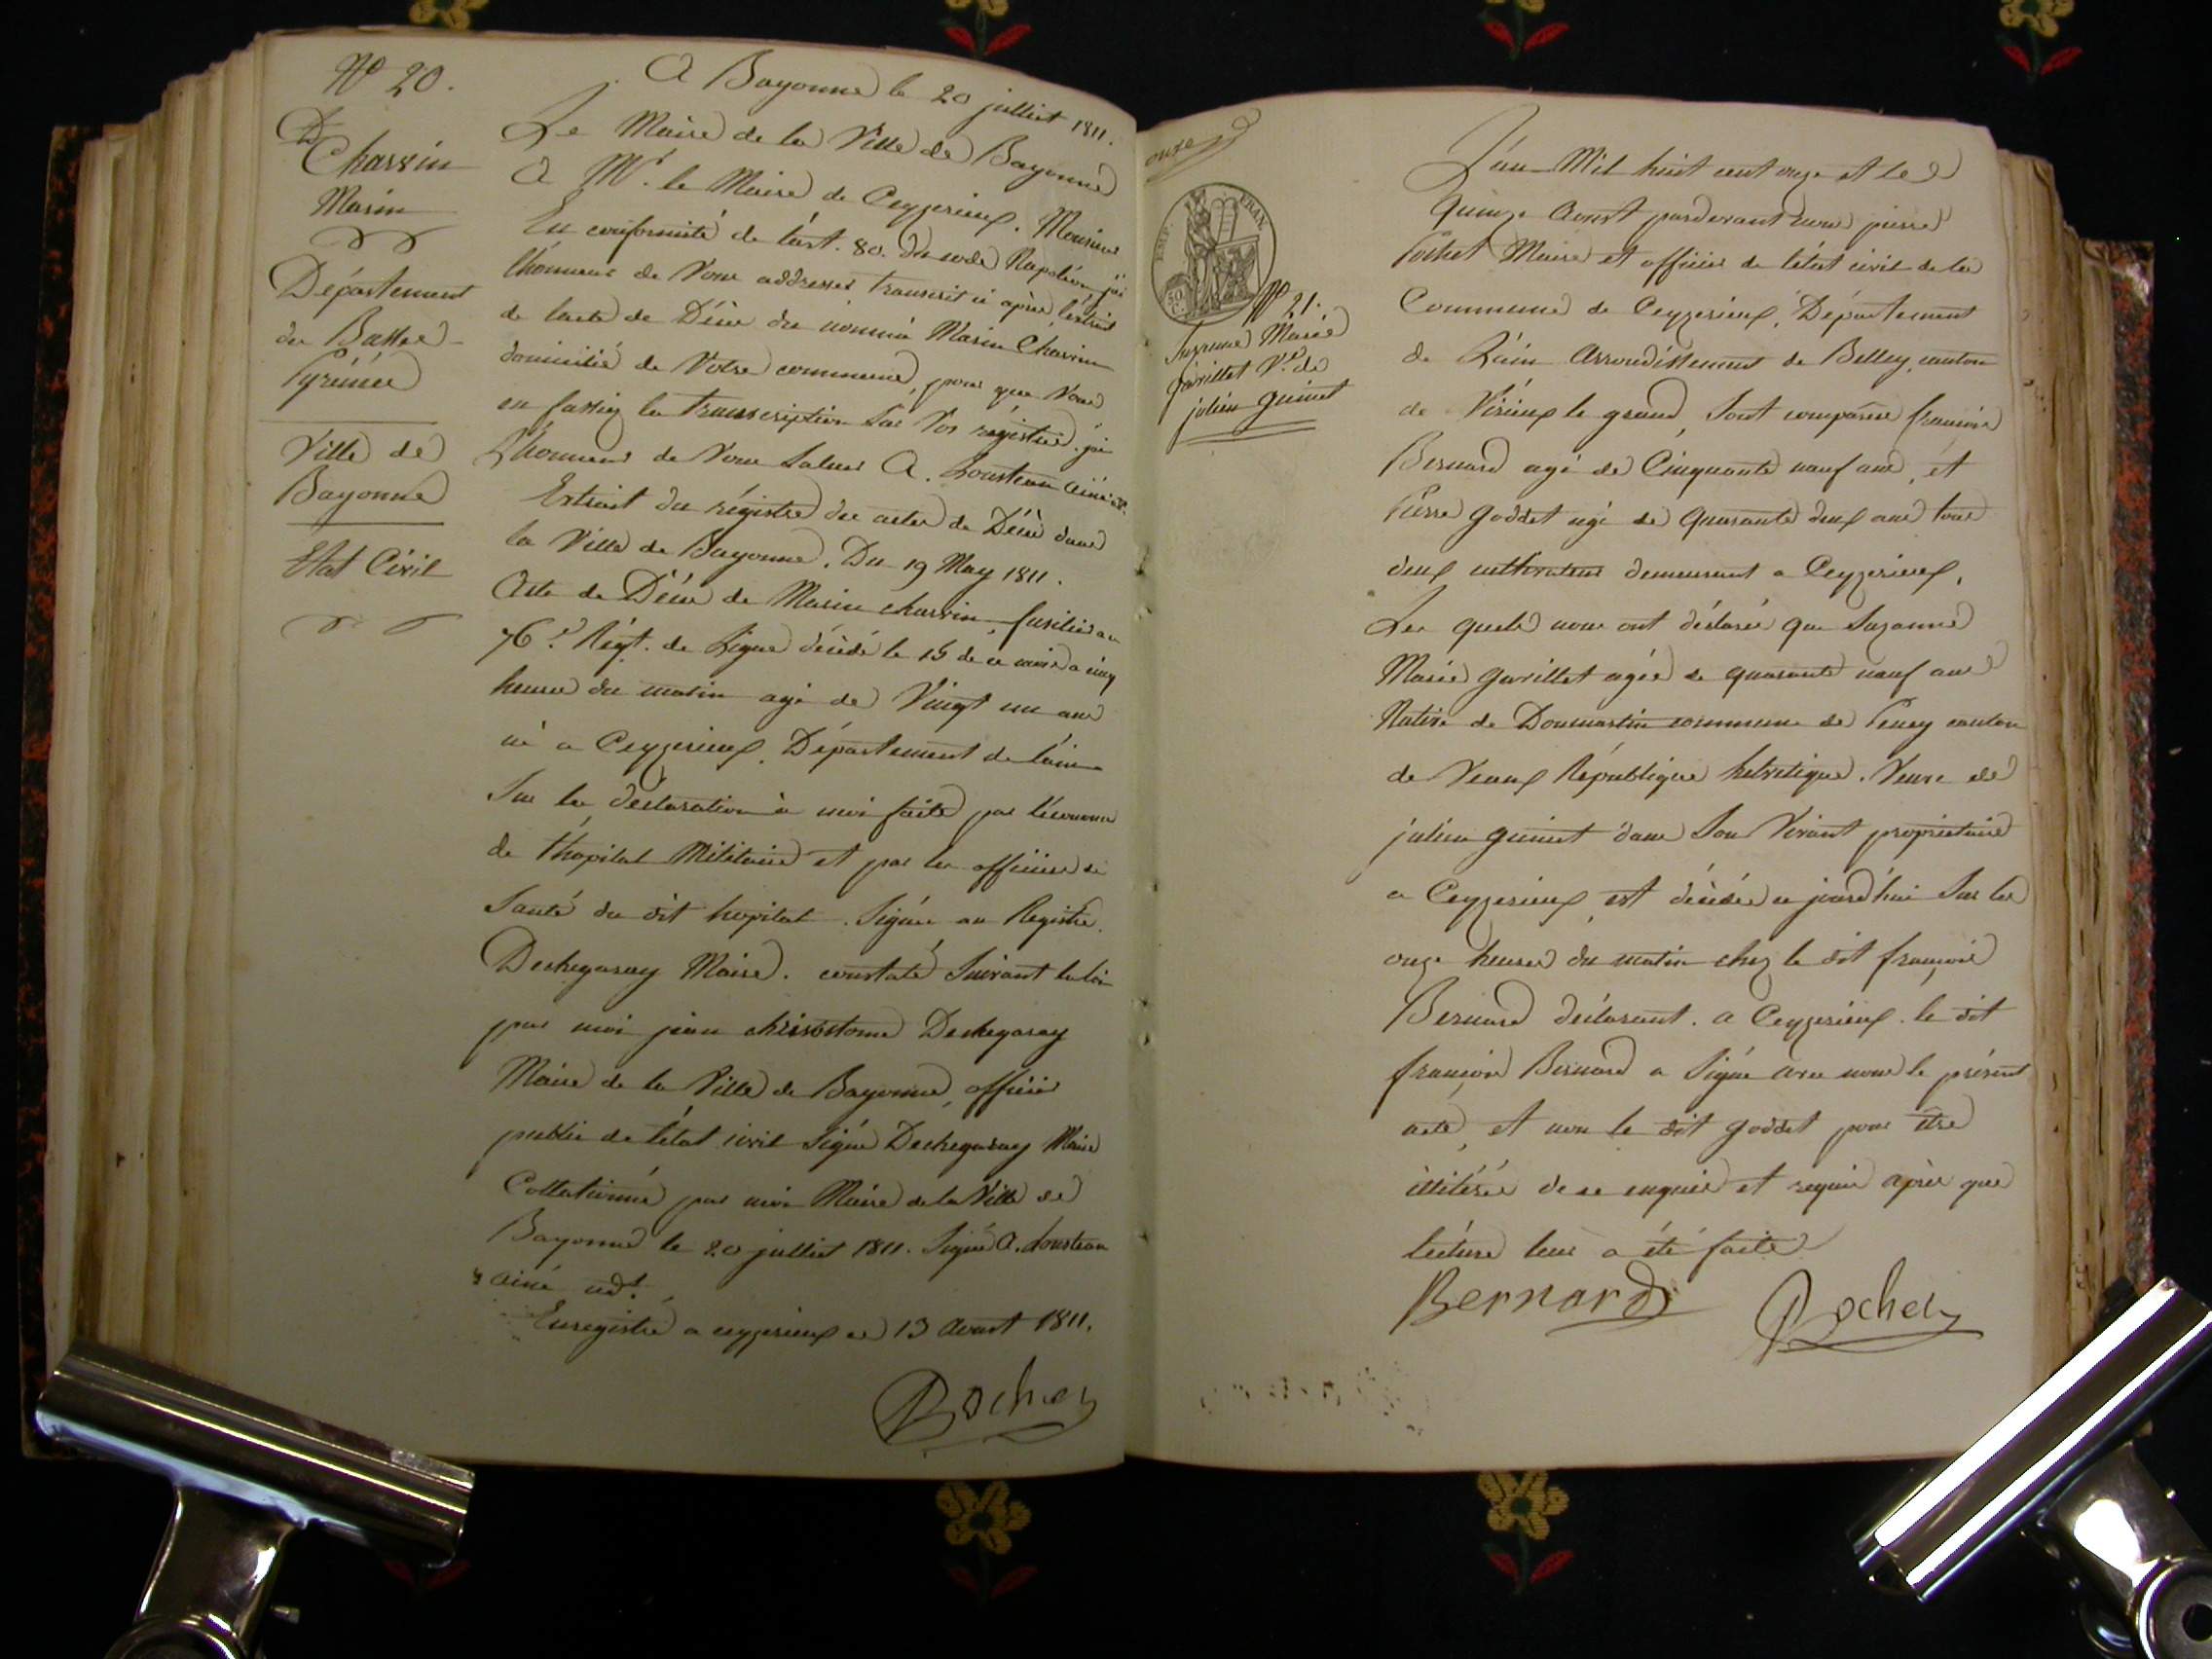 N° 20.
D
Charvin
Marin
Département
du Basses
Pyrénées
Ville de
Bayonne
Etat Civil
A Bayonne le 20 juillet 1811.
Le Maire de la Ville de Bayonne
A Mr. le Maire de Ceyzerieux. Monsieur
En conformité de l'art. 80. du code Napoléon j'ai
l'honneur de Vous addresser transcrit ci après l'extrait
de l'acte de Décès du nommé Marin Charvin
domicilié de Votre commune, pour que Vous
en fassiez la transcription Sur Vos régistres. j'ai
l'honneur de Vous Saluer A. Lousteau ainé adt.
Extrait du régistre des actes de Décès dans
la Ville de Bayonne. Du 19 May 1811.
Acte de Décès de Marin charvin, fusilier au
76e. Régt. de Ligne décédé le 15 de ce mois a cinq
heures du matin agé de Vingt un ans
né a Ceyzerieux. Département de l'ain
Sur la déclaration à moi faite par l'économe
de l'hopital Militaire et par les officiers de
Santé du dit hopital. Signés au Registre.
Dechegaray Maire. constaté Suivant la loi
par moi jean chrisostome Dechegaray
Maire de la Ville de Bayonne, officier
public de l'état civil Signé Dechegaray Maire
Collationné par moi Maire de la Ville de
Bayonne le 20 juillet 1811. Signé A. Lousteau
ainé adt.
Enregistré a ceyzerieux ce 13 Avout 1811.
Rochet
onze
EMP. FRAN.
50 C.
N° 21.
Suzanne Marie
gavillet Ve. de
julien guinet
L'an Mil huit cent onze et le
Quinze Avout pardevant nous pierre
Rochet Maire et officier de l'état civil de la
Commune de Ceyzerieux, Département
de L'ain Arrondissement de Belley, canton
de Virieux le grand, Sont comparus françois
Bernard agé de Cinquante neuf ans, et
Pierre goddet agé de Quarante deux ans tous
deux cultivateurs demeurant a Ceyzerieux,
Les quels nous ont déclarés que Suzanne
Marie gavillet agée de quarante neuf ans
Native de Dommartin commune de Peney canton
de Veaux République helvetique. Veuve de
julien guinet dans Son Vivant proprietaire
a Ceyzerieux, est décédée ajourd'hui Sur les
onze heures du matin chez le dit françois
Bernard déclarant. a Ceyzerieux. le dit
françois Bernard a Signé avec nous le présent
acte, et non le dit goddet pour être
illitéré de ce enquis et requis après que
lecture leur a été faite
Bernard Rochet